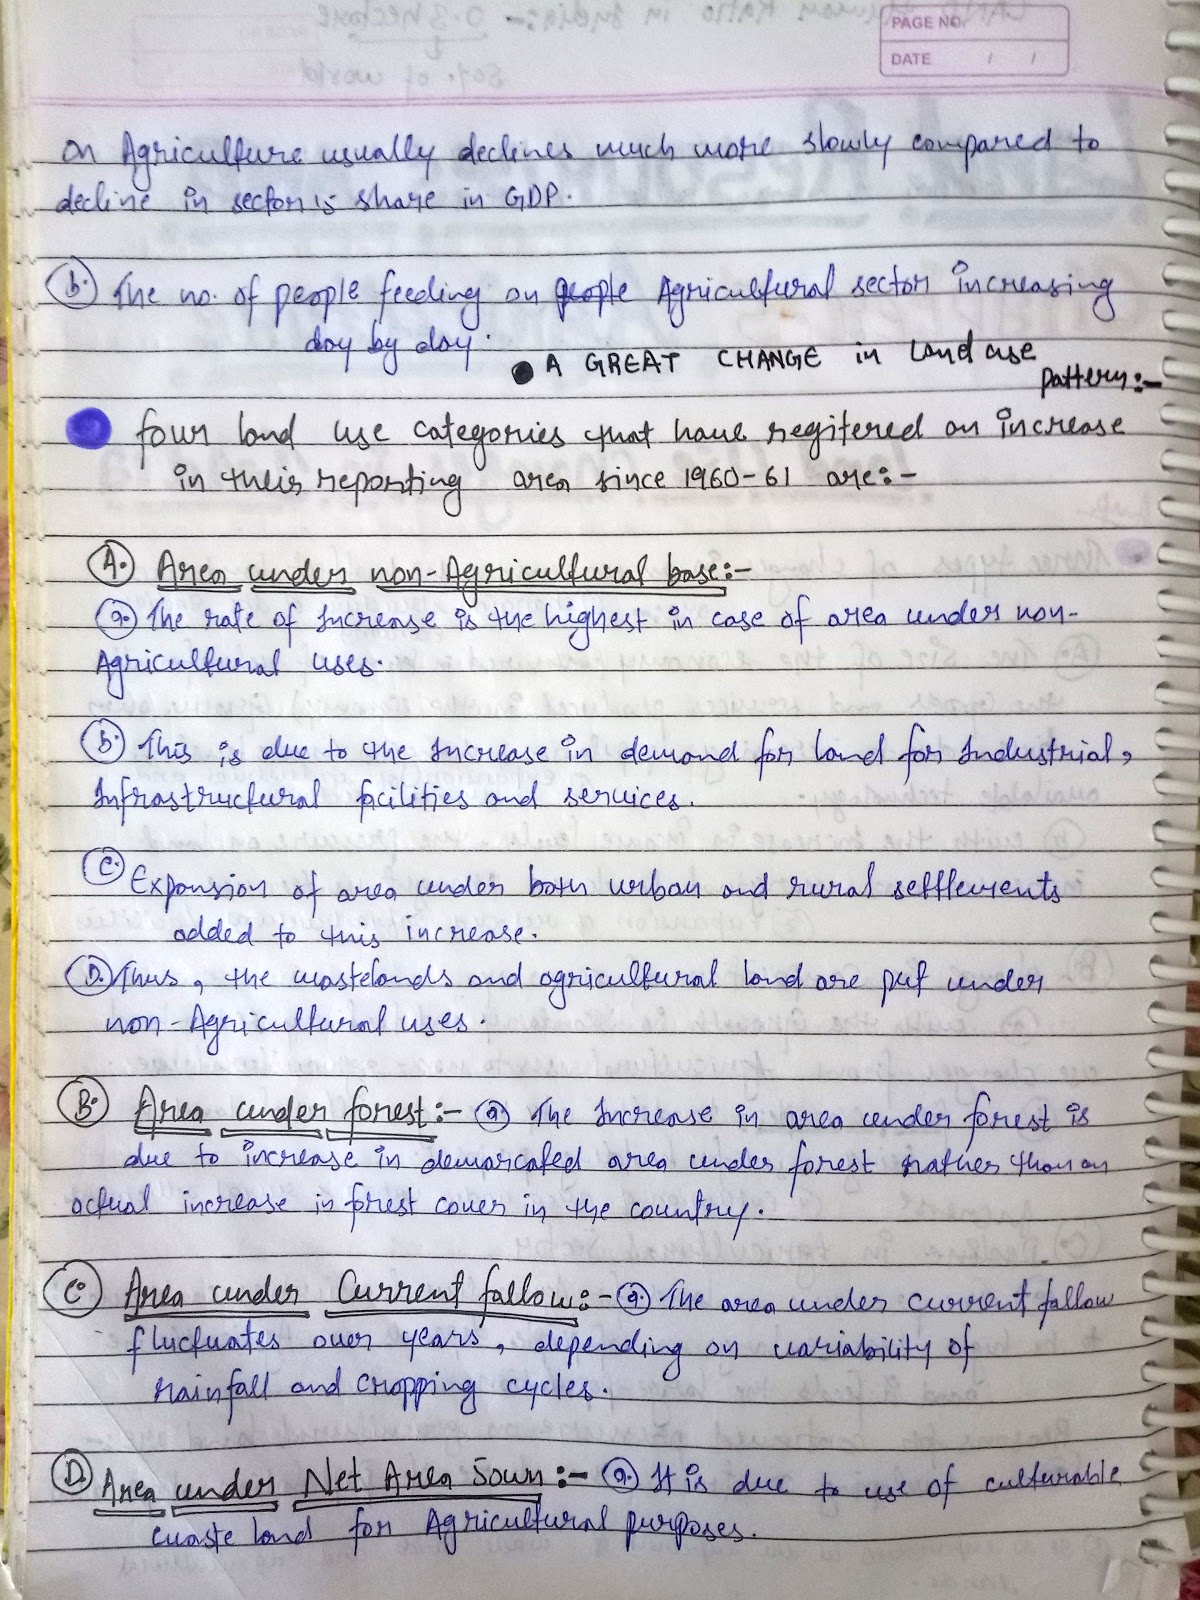 PAGE NO.
DATE / /
on Agriculture usually declines much more slowly compared to
decline in sector's share in GDP.
b. The no. of people feeding on people Agricultural sector increasing
day by day.
• A GREAT CHANGE in Land use
pattern:-
four land use categories that have regitered an increase
in their reporting area since 1960-61 are:-
A. Area under non-Agricultural base:-
a. The rate of Increase is the highest in case of area under non-
Agricultural uses.
b. This is due to the Increase in demand for land for Industrial,
Infrastructural facilities and services.
C. Expansion of area under both urban and rural settlements
added to this increase.
D. Thus, the wastelands and agricultural land are put under
non-Agricultural uses.
B. Area under forest:- a The Increase in area under forest is
due to increase in demarcated area under forest rather than an
actual increase in forest cover in the country.
C. Area under Current fallow:- a. The area under current fallow
fluctuates over years, depending on variability of
rainfall and cropping cycles.
D. Area under Net Area Sown:- a. It is due to use of culturable
waste land for Agricultural purposes.